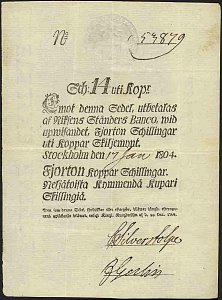 No 53879
Sch: 14 uti Kopr
Emot denna Sedel, utbetalas
af Riksens Ständers Banco, wid
upwisandet, Fjorton Schillingar
uti Koppar Skiljemynt.
Stockholm den 17 Jan 1804.
Fjorton Koppar Schillingar.
Neljätoista Kymmendä Kupari
Skillingiä.
Silverstolpe